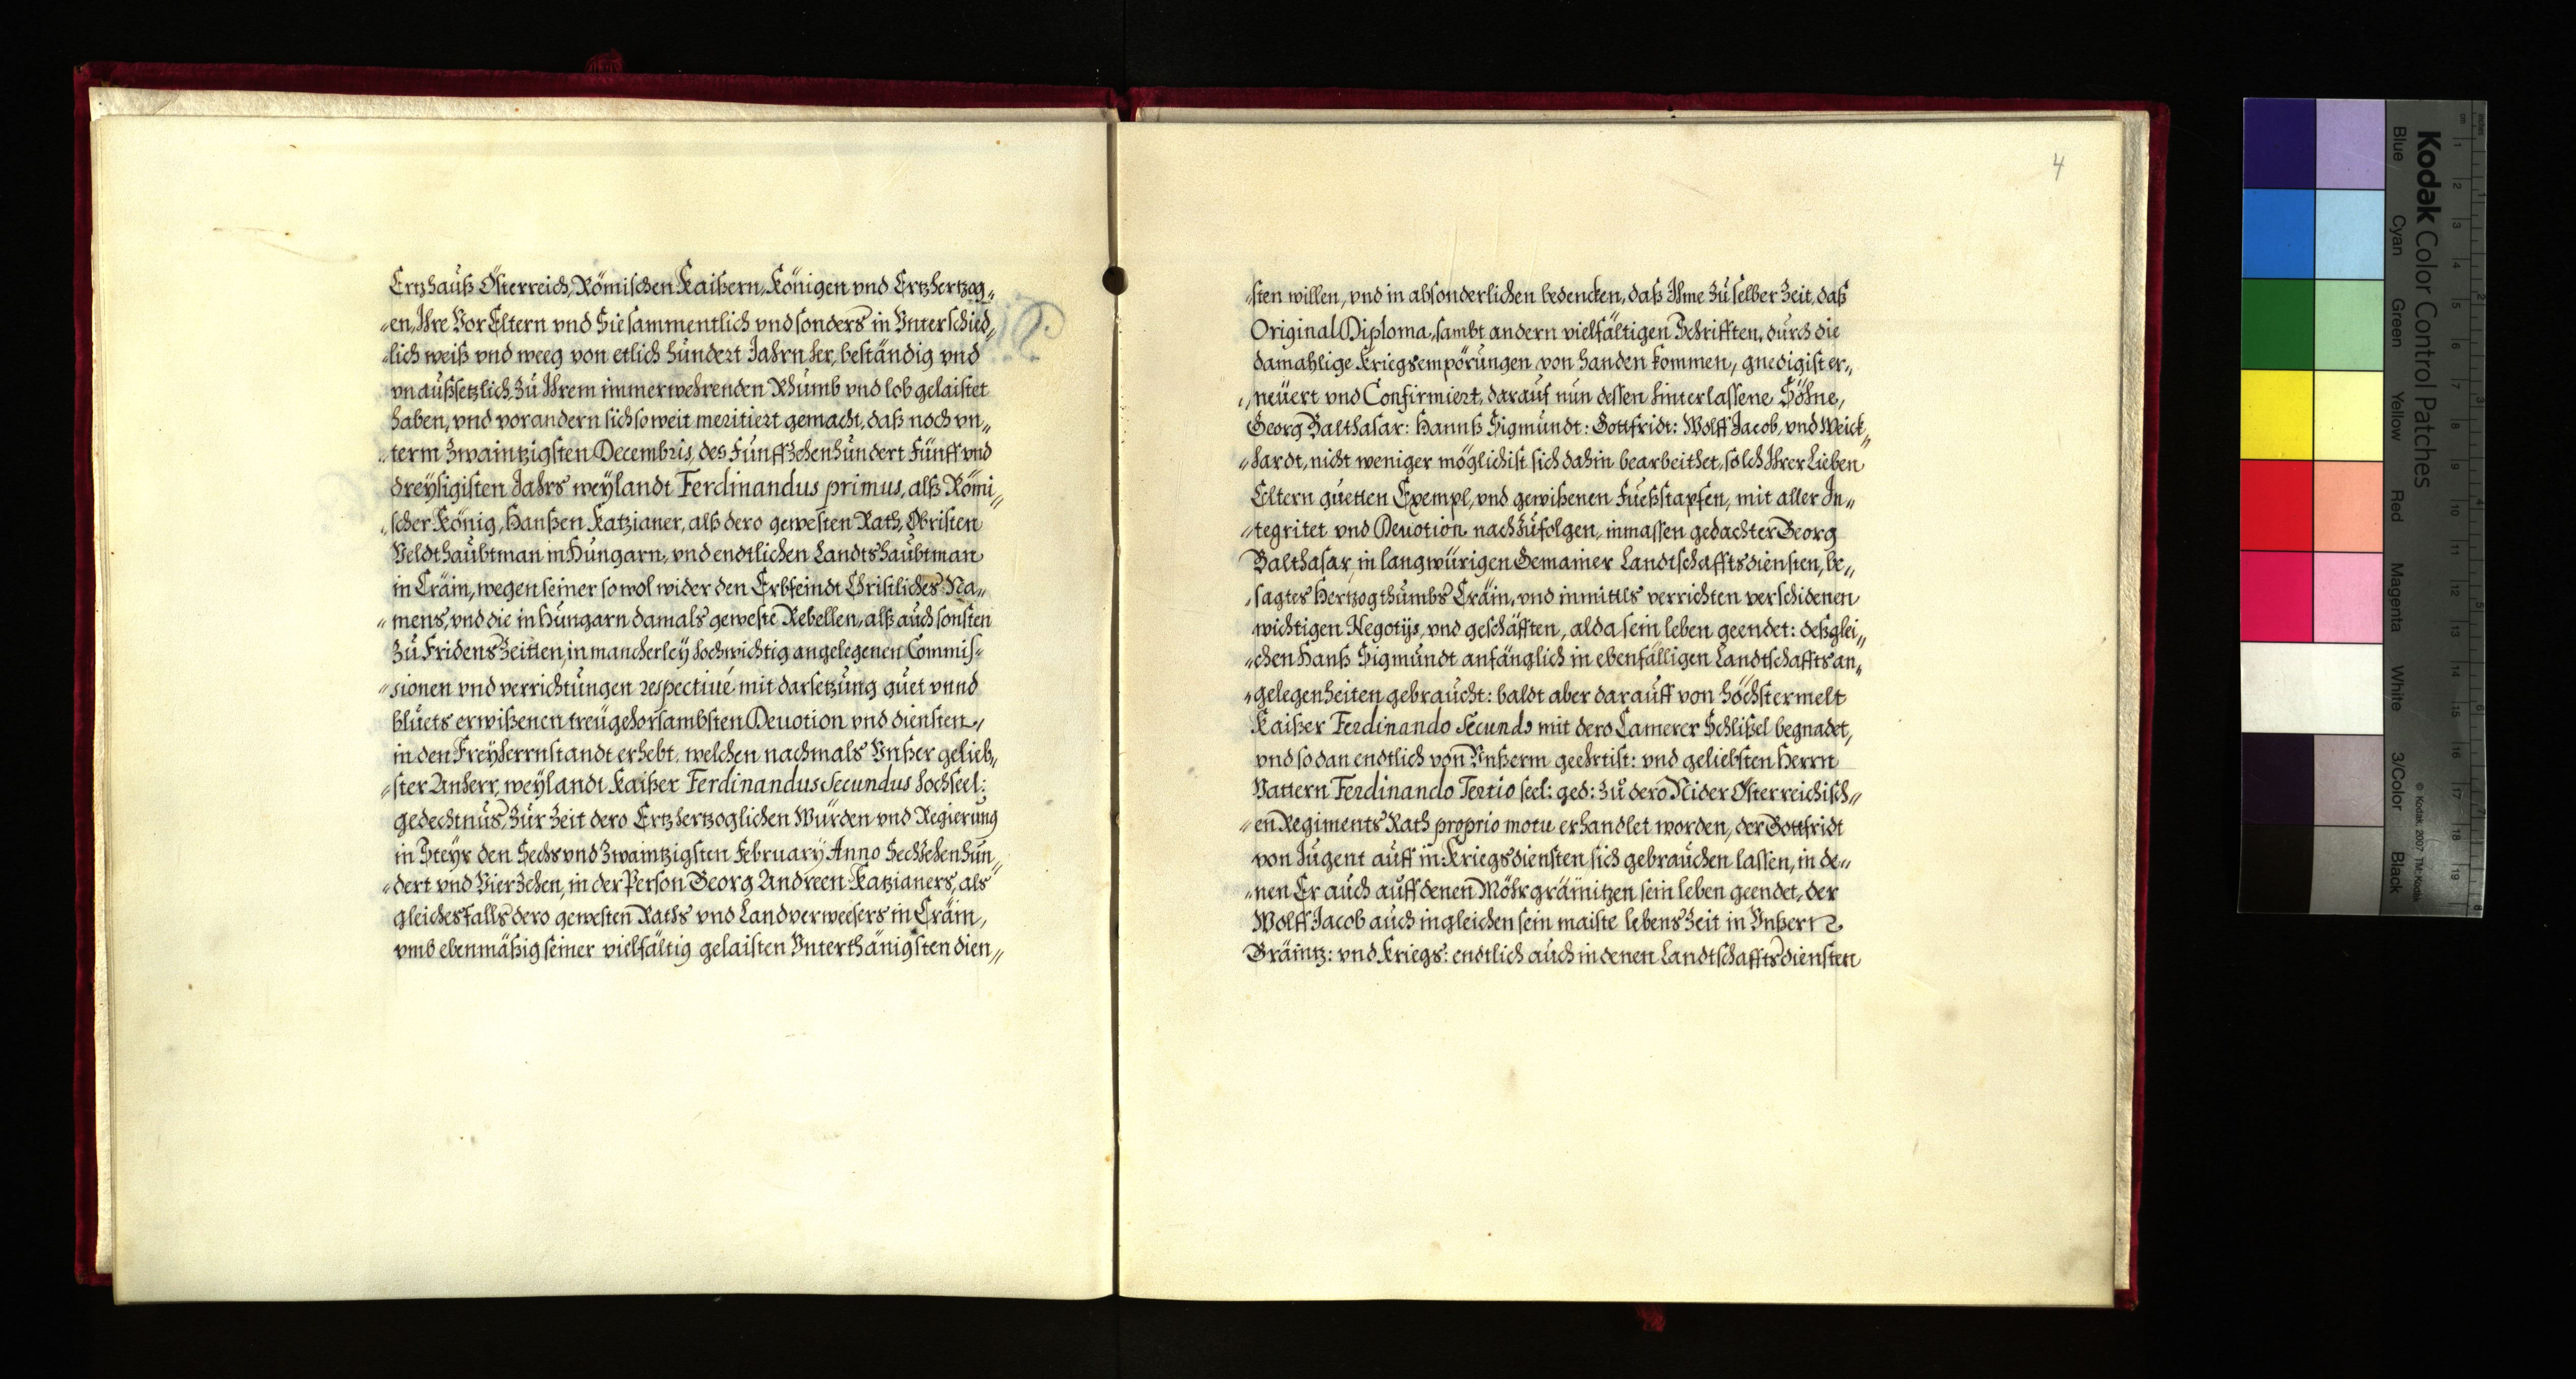 Ertzhauß Österreich, Römischen Kaißern, Königen vnd Ertzhertzog„
„en, Ihre Vor Eltern vnd Sie sammentlich vnd sonders in Vnterschied„
„lich weiß vnd weeg von etlich hundert Jahrn her, beständig vnd
vnaußsetzlich, zu Ihrem immerwehrenden Rhumb vnd lob gelaistet
haben, vnd vor andern sich so weit meritiert gemacht, daß noch vn„
„term Zwaintzigsten Decembris, des Funffzehenhundert Fünff vnd
dreysigisten Jahrs weylandt Ferdinandus primus, alß Römi„
„scher König, Hanßen Katzianer, alß dero gewesten Rath, Obristen
Veldthaubtman in Hungarn, vnd endtlichen Landtshaubtman
in Cräin, wegen seiner so wol wider den Erbfeindt Christliches Na„
„mens, vnd die in Hungarn damals geweste Rebellen, alß auch sonsten
Zu Fridens Zeitten, in mancherley hochwichtig angelegenen Commis„
„sionen vnd verrichtungen respectiuè mit darsetzung guet vnnd
bluets erwißenen treugehorsambsten Deuotion vnd diensten,
in den Freyherrnstandt erhebt, welchen nachmals Vnßer gelieb„
„ster Anherr, weylandt Kaißer Ferdinandus Secundus hochseel:
gedechtnus, Zur Zeit dero Ertzhertzoglichen Würden vnd Regierung
in Steyr den Sechs vnd Zwaintzigsten February Anno Sechzehenhun„
„dert vnd Vierzehen, in der Person Georg Andreen Katzianers, als
gleichesfalls dero gewesten Raths vnd Landverweesers in Cräin,
vmb ebenmäßig seiner vielfältig gelaisten Vnterthänigsten dien„
4
„sten willen, vnd in absonderlichen bedencken, daß Ihme zu selber Zeit, daß
Original Diploma, sambt andern vielfältigen Schrifften, durch die
damahlige Kriegsempörungen von handen kommen, gnedigist er„
„neuert vnd Confirmiert, darauf nun dessen hinterlassene Söhne,
Georg Balthasar: Hannß Sigmundt: Gottfridt: Wolff Jacob, vnd Weick„
„hardt, nicht weniger möglichist sich dahin bearbeithet, solch Ihrer Lieben
Eltern guetten Exempl, vnd gewißenen Fueßstapfen, mit aller In„
„tegritet vnd Deuotion nachzufolgen, inmassen gedachter Georg
Balthasar, in langwürigen Gemainer Landtschafftsdiensten, be„
„sagtes Hertzogthumbs Cräin, vnd inmittls verrichten verschidenen
wichtigen Negotijs, vnd geschäfften, alda sein leben geendet: deßglei„
„chen Hanß Sigmundt anfänglich in ebenfälligen Landtschaffts an„
„gelegenheiten gebraucht: baldt aber darauff von höchstermelt
Kaißer Ferdinando Secundo mit dero Camerer Schlißel begnadet,
vnd so dan endtlich von Vnßerm geehrtist: vnd geliebsten Herrn
Vattern Ferdinando Tertio seel: ged: Zu dero Nider Österreichisch„
„en Regiments Rath proprio motu erhandlet worden, der Gottfridt
von Jugent auff in Kriegsdiensten sich gebrauchen lassen, in de„
„nen Er auch auff denen Möhrgränitzen sein leben geendet, der
Wolff Jacob auch ingleichen sein maiste lebens Zeit in Vnßern
Gräintz: vnd Kriegs: endtlich auch in denen Landtschafftsdiensten
Kodak Color Control Patches
Blue
Cyan
Green
Yellow
Red
Magenta
White
3/Color
Black
© Kodak, 2007 TM: Kodak